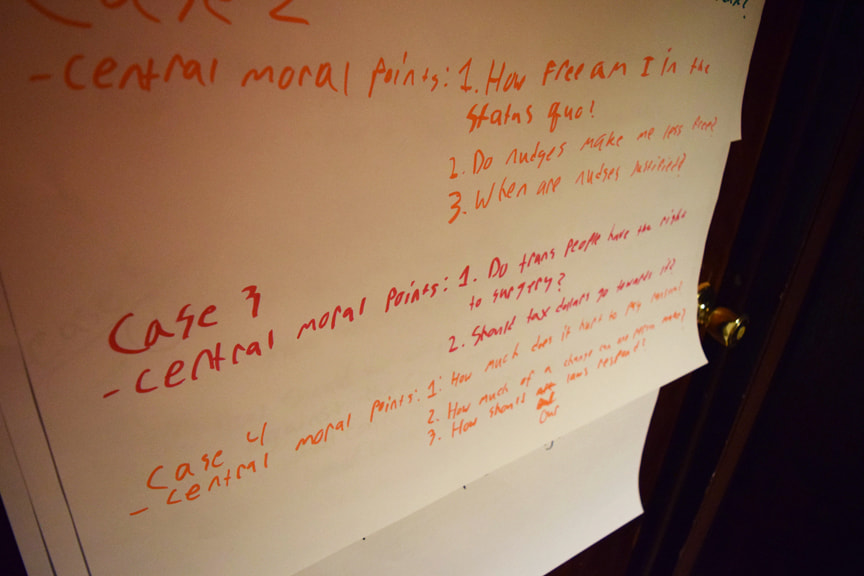 Case 2
- central moral points: 1. How free am I in the
status quo?
2. Do nudges make me less free?
3. When are nudges justified?
Case 3
- central moral points: 1. Do trans people have the right
to surgery?
2. Should tax dollars go towards it?
Case 4
- central moral points: 1. How much does it hurt to pay
2. How much of a change can one person make?
3. How should laws respond?
our